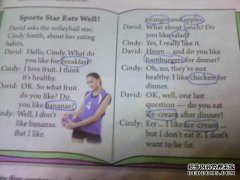 Sports Star Eats Well!
David asks the volleyball star,
Cindy Smith, about her eating
habits.
David: Hello, Cindy. What do
you like for breakfast?
Cindy: I love fruit. I think
it's healthy.
David: OK. So what fruit
do you like? Do
you like bananas?
Cindy: Well, I don't
like bananas.
But I like
oranges and apples.
David: What about lunch? Do
you like salad?
Cindy: Yes, I really like it.
David: Hmm... and do you like
hamburgers for dinner?
Cindy: Oh, no, they're not
healthy. I like chicken for
dinner.
David: OK, well, one last
question — do you eat
ice-cream after dinner?
Cindy: Err... I like ice-cream,
but I don't eat it. I don't
want to be fat.